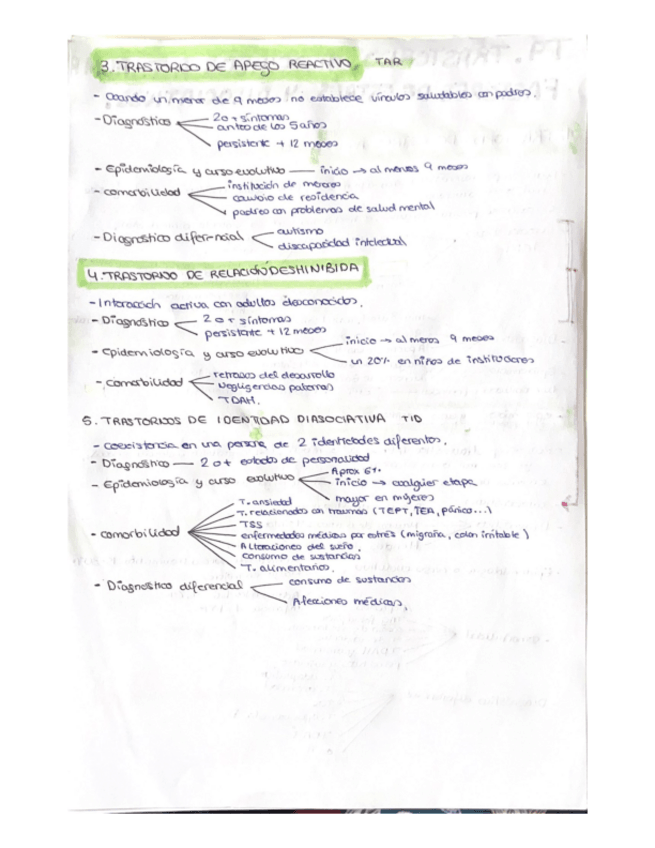 3. TRASTORNO DE APEGO REACTIVO, TAR
- Cuando un menor de 9 meses no establece vínculos saludables con padres.
- Diagnóstico
2 o + síntomas
antes de los 5 años
persistente + 12 meses
- Epidemiología y curso evolutivo — inicio → al menos 9 meses
- comorbilidad
institución de menores
cambio de residencia
padres con problemas de salud mental
- Diagnóstico diferencial
autismo
discapacidad intelectual
4. TRASTORNO DE RELACIÓN DESHINIBIDA
- Interacción activa con adultos desconocidos.
- Diagnóstico
2 o + síntomas
persistente + 12 meses
- Epidemiología y curso evolutivo
inicio → al menos 9 meses
un 20% en niños de instituciones
- comorbilidad
retrasos del desarrollo
Negligencias paternas
TDAH.
5. TRASTORNOS DE IDENTIDAD DIASOCIATIVA TID
- coexistencia en una persona de 2 identidades diferentes.
- Diagnóstico — 2 o + estados de personalidad
- Epidemiología y curso evolutivo
Aprox 6%
inicio → cualquier etapa
mayor en mujeres
- comorbilidad
T. ansiedad
T. relacionados con traumas (TEPT, TEA, pánico...)
TSS
enfermedades médicas por estrés (migraña, colon irritable)
Alteraciones del sueño.
consumo de sustancias
T. alimentarios.
- Diagnóstico diferencial
consumo de sustancias
Afecciones médicas.